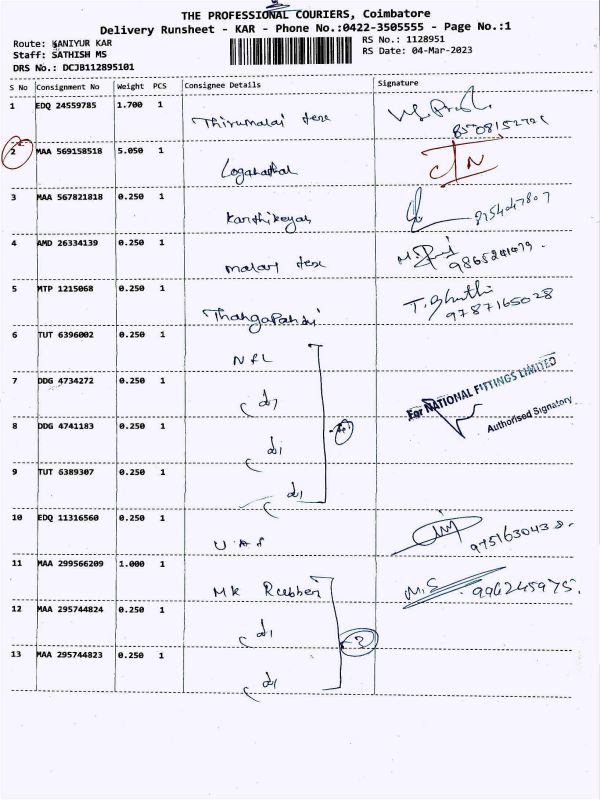 THE PROFESSIONAL COURIERS, Coimbatore
Delivery Runsheet - KAR - Phone No.:0422-3505555 - Page No.:1
Route: KANIYUR KAR
RS No.: 1128951
Staff: SATHISH MS
RS Date: 04-Mar-2023
DRS No.: DCJB112895101
S No Consignment No Weight PCS Consignee Details Signature
1 EDQ 24559785 1.700 1 Thirumalai
2 MAA 569158518 5.050 1
3 MAA 567821818 0.250 1 Karthikeyan
4 AMD 26334139 0.250 1
5 MTP 1215068 0.250 1 Thangapandi
9787165028
6 TUT 6396002 0.250 1 NFL
7 DDG 4734272 0.250 1
For NATIONAL FITTINGS LIMITED
Authorised Signatory
8 DDG 4741183 0.250 1
9 TUT 6389307 0.250 1
10 EDQ 11316560 0.250 1
11 MAA 299566209 1.000 1 MK Rubber
12 MAA 295744824 0.250 1
13 MAA 295744823 0.250 1